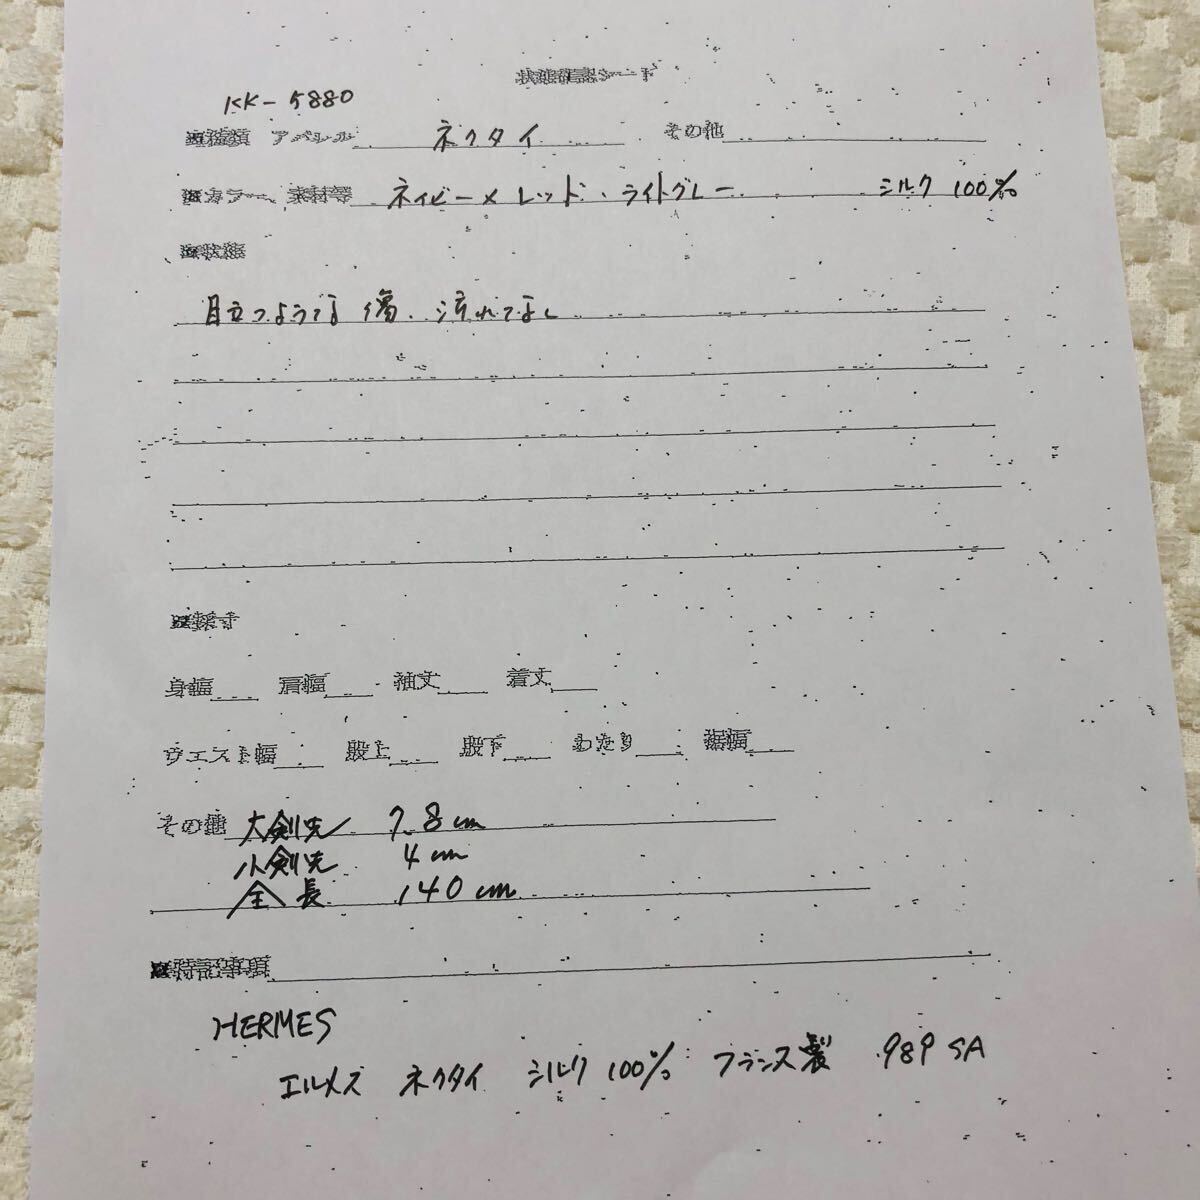 状態確認シート
KK-5880
※種類 アパレル ネクタイ その他
※カラー、素材等 ネイビー×レッド・ライトグレー シルク 100%
※状態
目立つような傷、汚れなし
※採寸
身幅 肩幅 袖丈 着丈
ウエスト幅 股上 股下 わたり 裾幅
その他 大剣先 7.8cm
小剣先 4cm
全長 140cm
※特記事項
HERMES
エルメス ネクタイ シルク 100% フランス製 989 SA